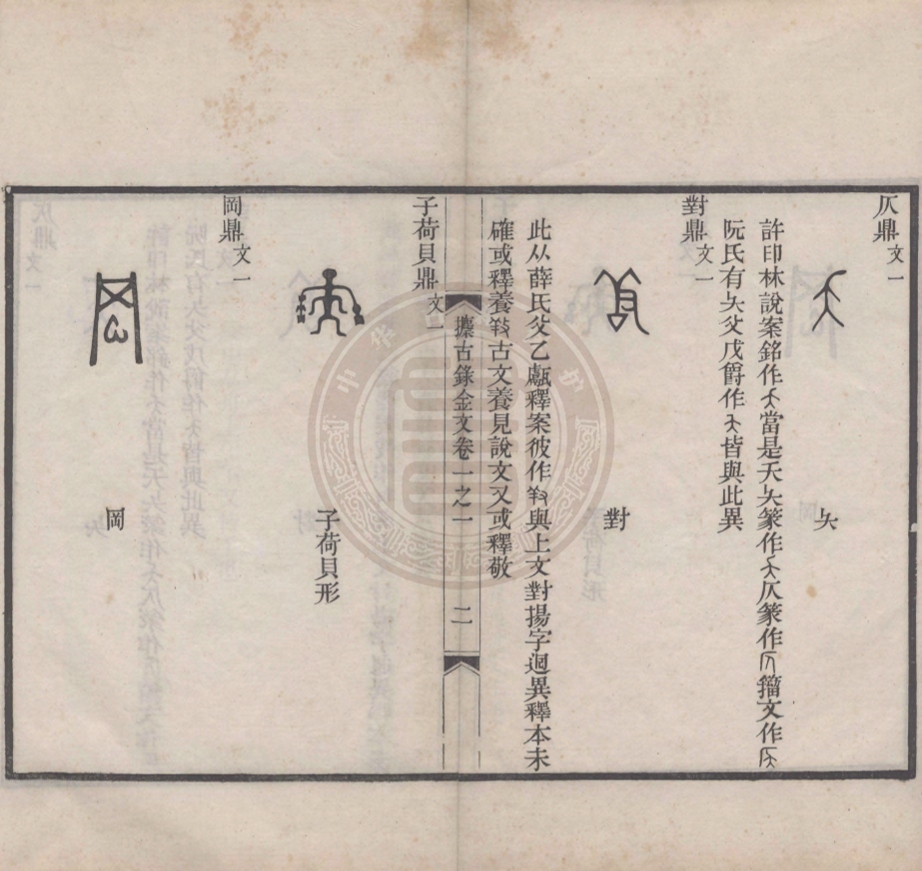 仄鼎文一
夨
許印林說案銘作當是天夨篆作仄篆作籀文作
阮氏有夨父戊爵作皆與此異
對鼎文一
對
此从薛氏父乙甗釋案彼作與上文對揚字迥異釋本未
確或釋養古文養見說文又或釋敬
攗古錄金文卷一之一 二
子荷貝鼎文一
子荷貝形
岡鼎文一
岡